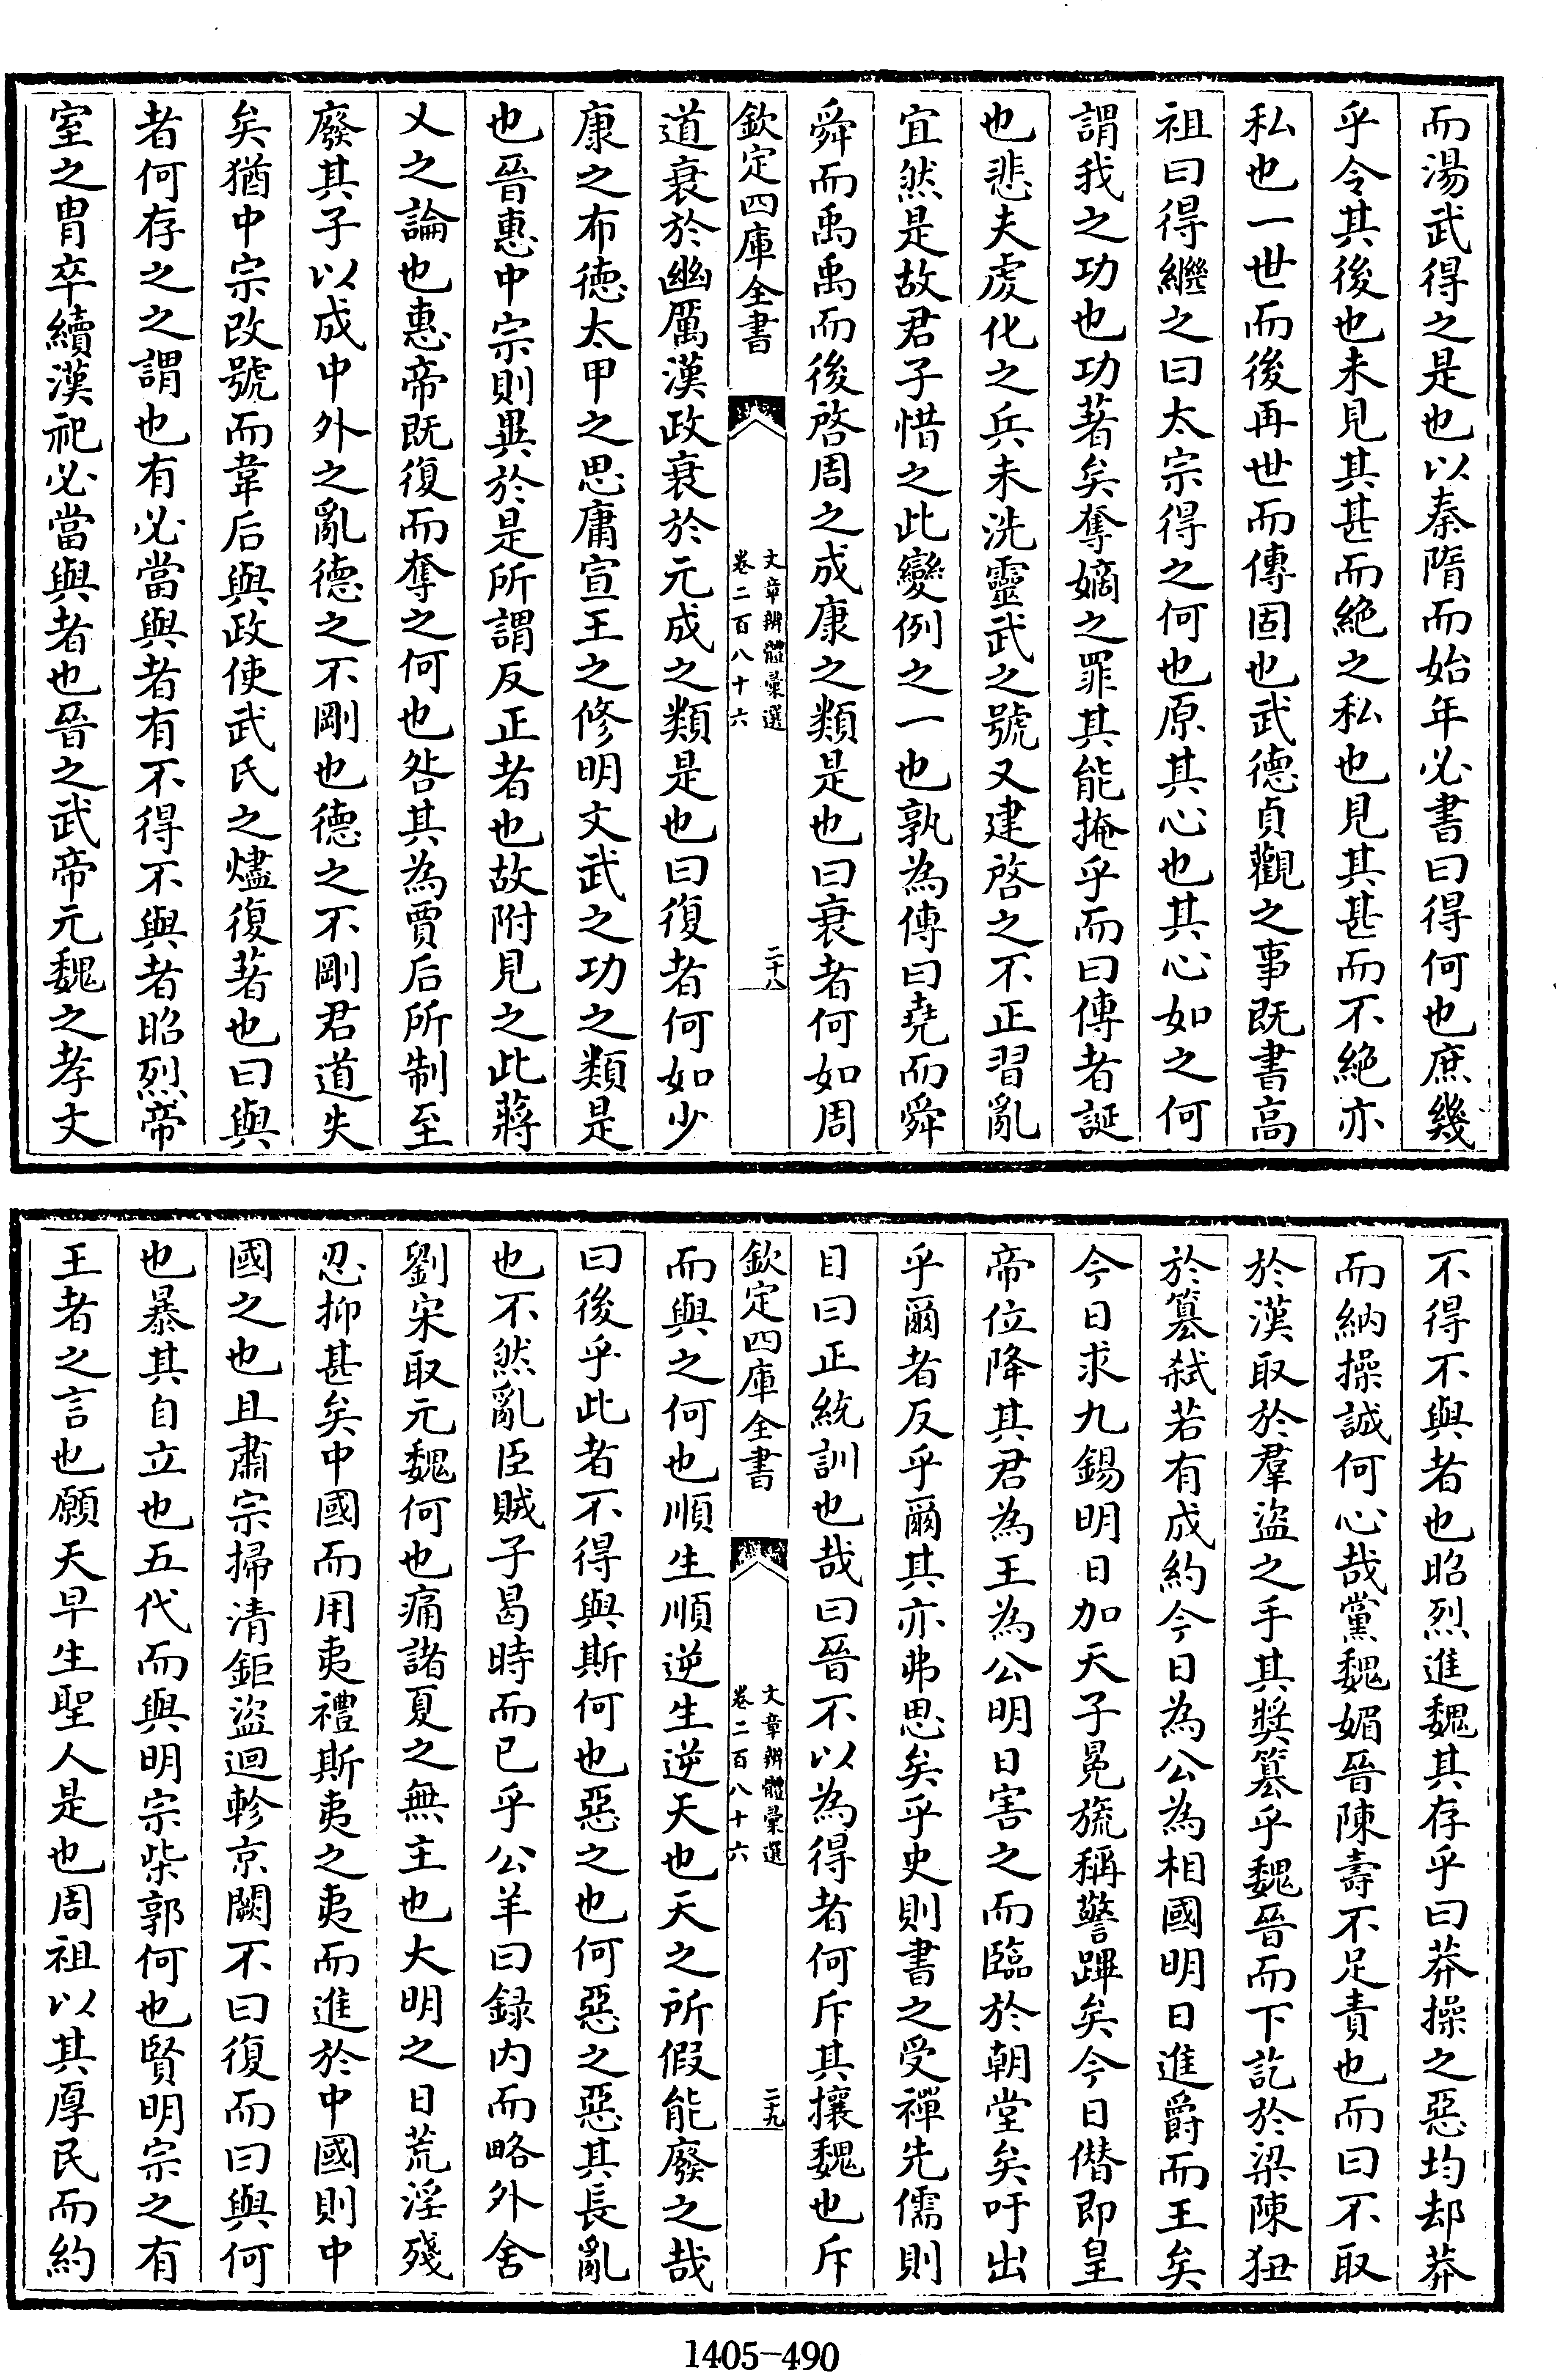 而湯武得之是也以秦隋而始年必書曰得何也庶幾
乎令其後也未見其甚而絶之私也見其甚而不絶亦
私也一世而後再世而傳固也武德貞觀之事既書高
祖曰得繼之曰太宗得之何也原其心也其心如之何
謂我之功也功著矣奪嫡之罪其能掩乎而曰傳者誕
也悲夫虔化之兵未洗靈武之號又建啓之不正習亂
宜然是故君子惜之此變例之一也孰為傳曰堯而舜
舜而禹禹而後啓周之成康之類是也曰衰者何如周
欽定四庫全書
文章辨體彙選
卷二百八十六
二十八
道衰於幽厲漢政衰於元成之類是也曰復者何如少
康之布德太甲之思庸宣王之修明文武之功之類是
也晉惠中宗則異於是所謂反正者也故附見之此蔣
乂之論也惠帝既復而奪之何也咎其為賈后所制至
廢其子以成中外之亂德之不剛也德之不剛君道失
矣猶中宗改號而韋后與政使武氏之燼復著也曰與
者何存之之謂也有必當與者有不得不與者昭烈帝
室之胄卒續漢祀必當與者也晉之武帝元魏之孝文
不得不與者也昭烈進魏其存乎曰莽操之惡均却莽
而納操誠何心哉黨魏媚晉陳壽不足責也而曰不取
於漢取於羣盜之手其奬簒乎魏晉而下訖於梁陳狃
於簒弑若有成約今日為公為相國明日進爵而王矣
今日求九錫明日加天子冕旒稱警蹕矣今日僭即皇
帝位降其君為王為公明日害之而臨於朝堂矣吁出
乎爾者反乎爾其亦弗思矣乎史則書之受禪先儒則
目曰正統訓也哉曰晉不以為得者何斥其攘魏也斥
欽定四庫全書
文章辨體彙選
卷二百八十六
二十九
而與之何也順生順逆生逆天也天之所假能廢之哉
曰後乎此者不得與斯何也惡之也何惡之惡其長亂
也不然亂臣賊子曷時而已乎公羊曰録内而略外舍
劉宋取元魏何也痛諸夏之無主也大明之日荒淫殘
忍抑甚矣中國而用夷禮斯夷之夷而進於中國則中
國之也且肅宗掃清鉅盜迴軫京闕不曰復而曰與何
也暴其自立也五代而與明宗柴郭何也賢明宗之有
王者之言也願天早生聖人是也周祖以其厚民而約
1405-490